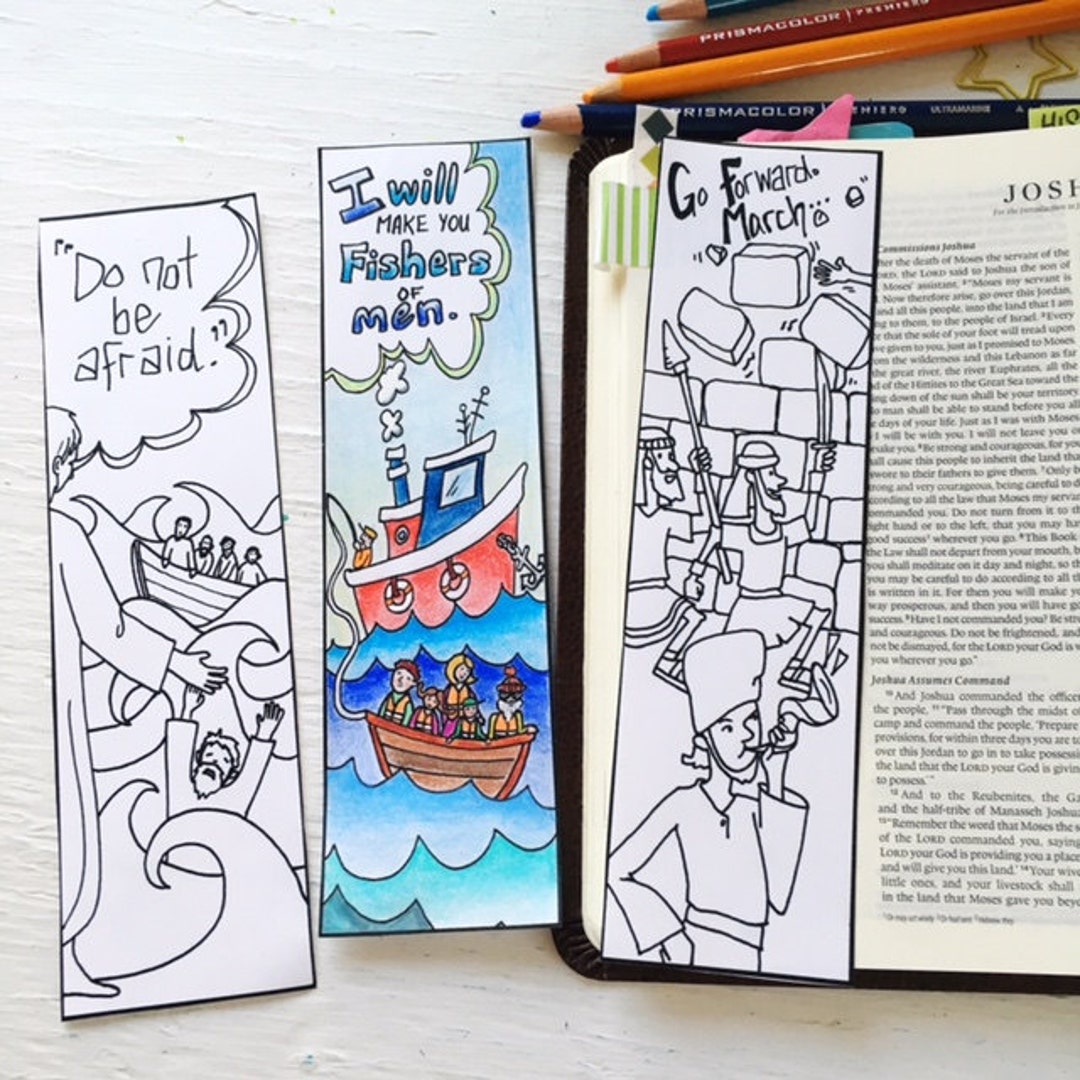 "Do not
be
afraid."
I will
MAKE YOU
Fishers
OF
men.
Go Forward.
March...
PRISMACOLOR | PREMIER
PRISMACOLOR PREMIER ULTRAMARINE
JOSH
For the Introduction to
Commissions Joshua
the death of Moses the servant of the
LORD, the LORD said to Joshua the son of
Moses' assistant, "Moses my servant is
Now therefore arise, go over this Jordan,
and all this people, into the land that I am
to them, to the people of Israel. Every
that the sole of your foot will tread upon
given to you, just as I promised to Moses.
the wilderness and this Lebanon as far
the great river, the river Euphrates, all the
of the Hittites to the Great Sea toward the
going down of the sun shall be your territory.
man shall be able to stand before you all
days of your life. Just as I was with Moses,
I will be with you. I will not leave you or
forsake you. Be strong and courageous, for you
shall cause this people to inherit the land that
swore to their fathers to give them. 7 Only be
strong and very courageous, being careful to do
according to all the law that Moses my servant
commanded you. Do not turn from it to the
right hand or to the left, that you may have
good success wherever you go. 8 This Book
the Law shall not depart from your mouth, but
you shall meditate on it day and night, so that
you may be careful to do according to all that
is written in it. For then you will make your
way prosperous, and then you will have good
success. 9 Have I not commanded you? Be strong
and courageous. Do not be frightened, and do
not be dismayed, for the LORD your God is with
you wherever you go."
Joshua Assumes Command
10 And Joshua commanded the officers
the people, 11 "Pass through the midst of
camp and command the people, 'Prepare
provisions, for within three days you are to
over this Jordan to go in to take possession
the land that the LORD your God is giving
to possess.'"
12 And to the Reubenites, the Ga
and the half-tribe of Manasseh Joshua
13 "Remember the word that Moses the s
of the LORD commanded you, saying
LORD your God is providing you a place
and will give you this land.' 14 Your wives
little ones, and your livestock shall
in the land that Moses gave you beyo